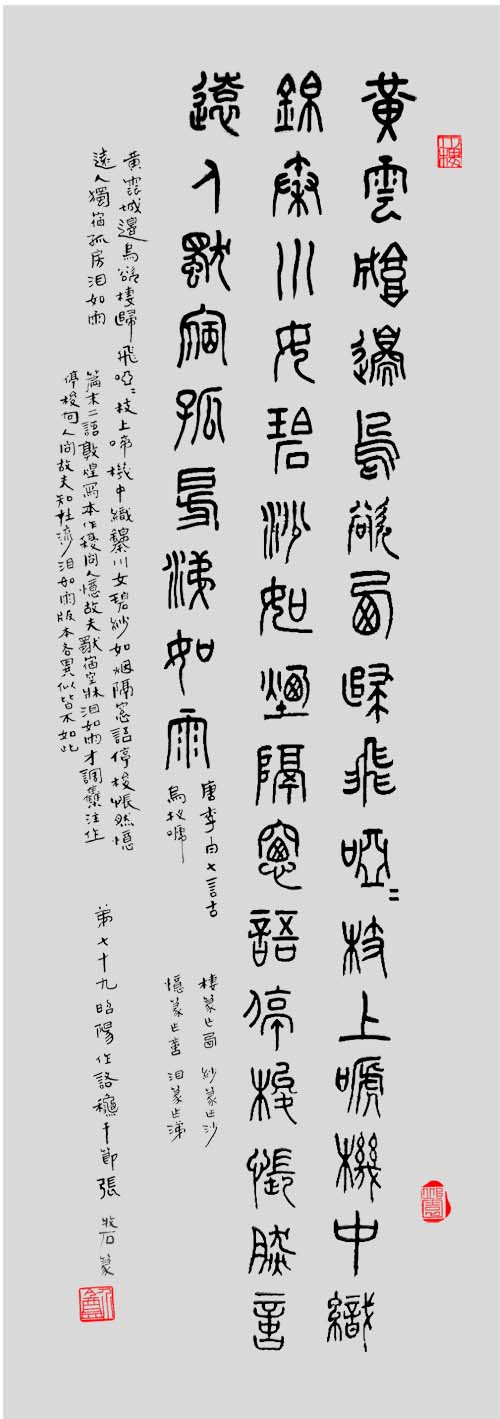 黃雲城邊烏欲西歸飛啞〻枝上嗁機中織
錦秦川女碧沙如煙隔窗語停梭悵然意
遠人獨宿孤房涕如雨
唐李白七言古
烏夜啼
棲篆作西 紗篆作沙
憶篆作意 泪篆作涕
黃雲城邊烏欲棲歸飛啞〻枝上啼機中織錦秦川女碧紗如烟隔窓語停梭悵然憶
遠人獨宿孤房泪如雨
篇末二語敦煌寫本作停梭問人憶故夫獨宿空牀泪如雨才調集注作
停梭向人問故夫知泪如雨版本各異似皆不如此
第七十九昭陽作詻穐干節張牧石篆